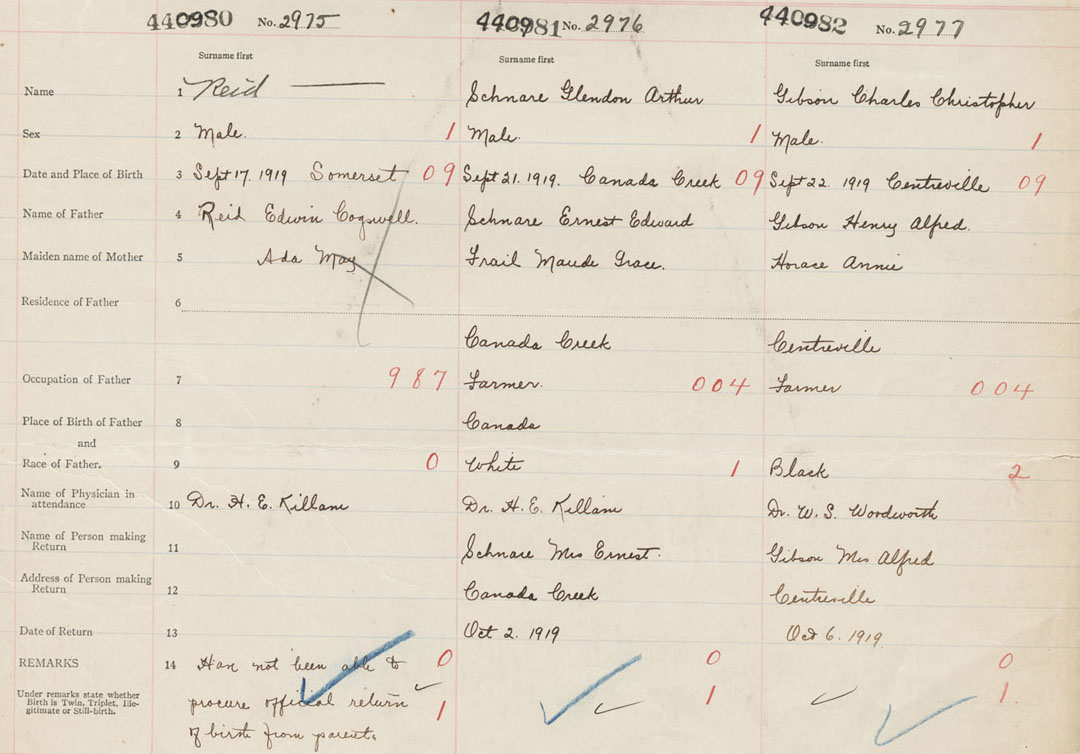 440980 No. 2975 440981 No. 2976 440982 No. 2977
Surname first Surname first Surname first
Name 1 Reid Schnare Glendon Arthur Gibson Charles Christopher
Sex 2 Male. 1 Male. 1 Male. 1
Date and Place of Birth 3 Sept 17. 1919 Somerset 09 Sept 21. 1919. Canada Creek 09 Sept 22. 1919 Centreville 09
Name of Father 4 Reid Edwin Cogswell. Schnare Ernest Edward Gibson Henry Alfred.
Maiden name of Mother 5 Ada May Frail Maude Grace. Horace Annie
Residence of Father 6
Canada Creek Centreville
Occupation of Father 7 987 Farmer. 004 Farmer 004
Place of Birth of Father 8 Canada
and
Race of Father. 9 0 White 1 Black 2
Name of Physician in
attendance 10 Dr. H. E. Killam Dr. H. E. Killam Dr. W. S. Woodworth
Name of Person making
Return 11 Schnare Mrs Ernest. Gibson Mrs Alfred
Address of Person making
Return 12 Canada Creek Centreville
Date of Return 13 Oct 2. 1919 Oct 6. 1919
REMARKS 14 Have not been able to 0 0 0
Under remarks state whether
Birth is Twin, Triplet, Ille-
gitimate or Still-birth.
procure official return 1 1 1
of birth from parents